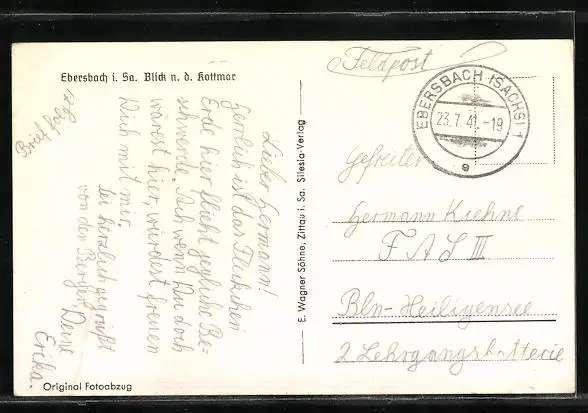 Ebersbach i. Sa. Blick n. d. Kottmar
Brief folgt
Lieber Hermann!
Herrlich ist das Fleckchen
Erde hier, flieht jegliche Be-
schwerde. Ach wenn Du doch
wärest hier, würdest freuen
Dich mit mir.
Sei herzlich gegrüßt
von den Bergen Deine
Ericka.
Original Fotoabzug
E. Wagner Söhne, Zittau i. Sa. Silesia-Verlag
Feldpost
EBERSBACH (SACHS) 1
23.7.41.-19
e
Gefreiter
Hermann Kiehne
F A S III
Bln-Heiligensee
2. Lehrgangsbatterie